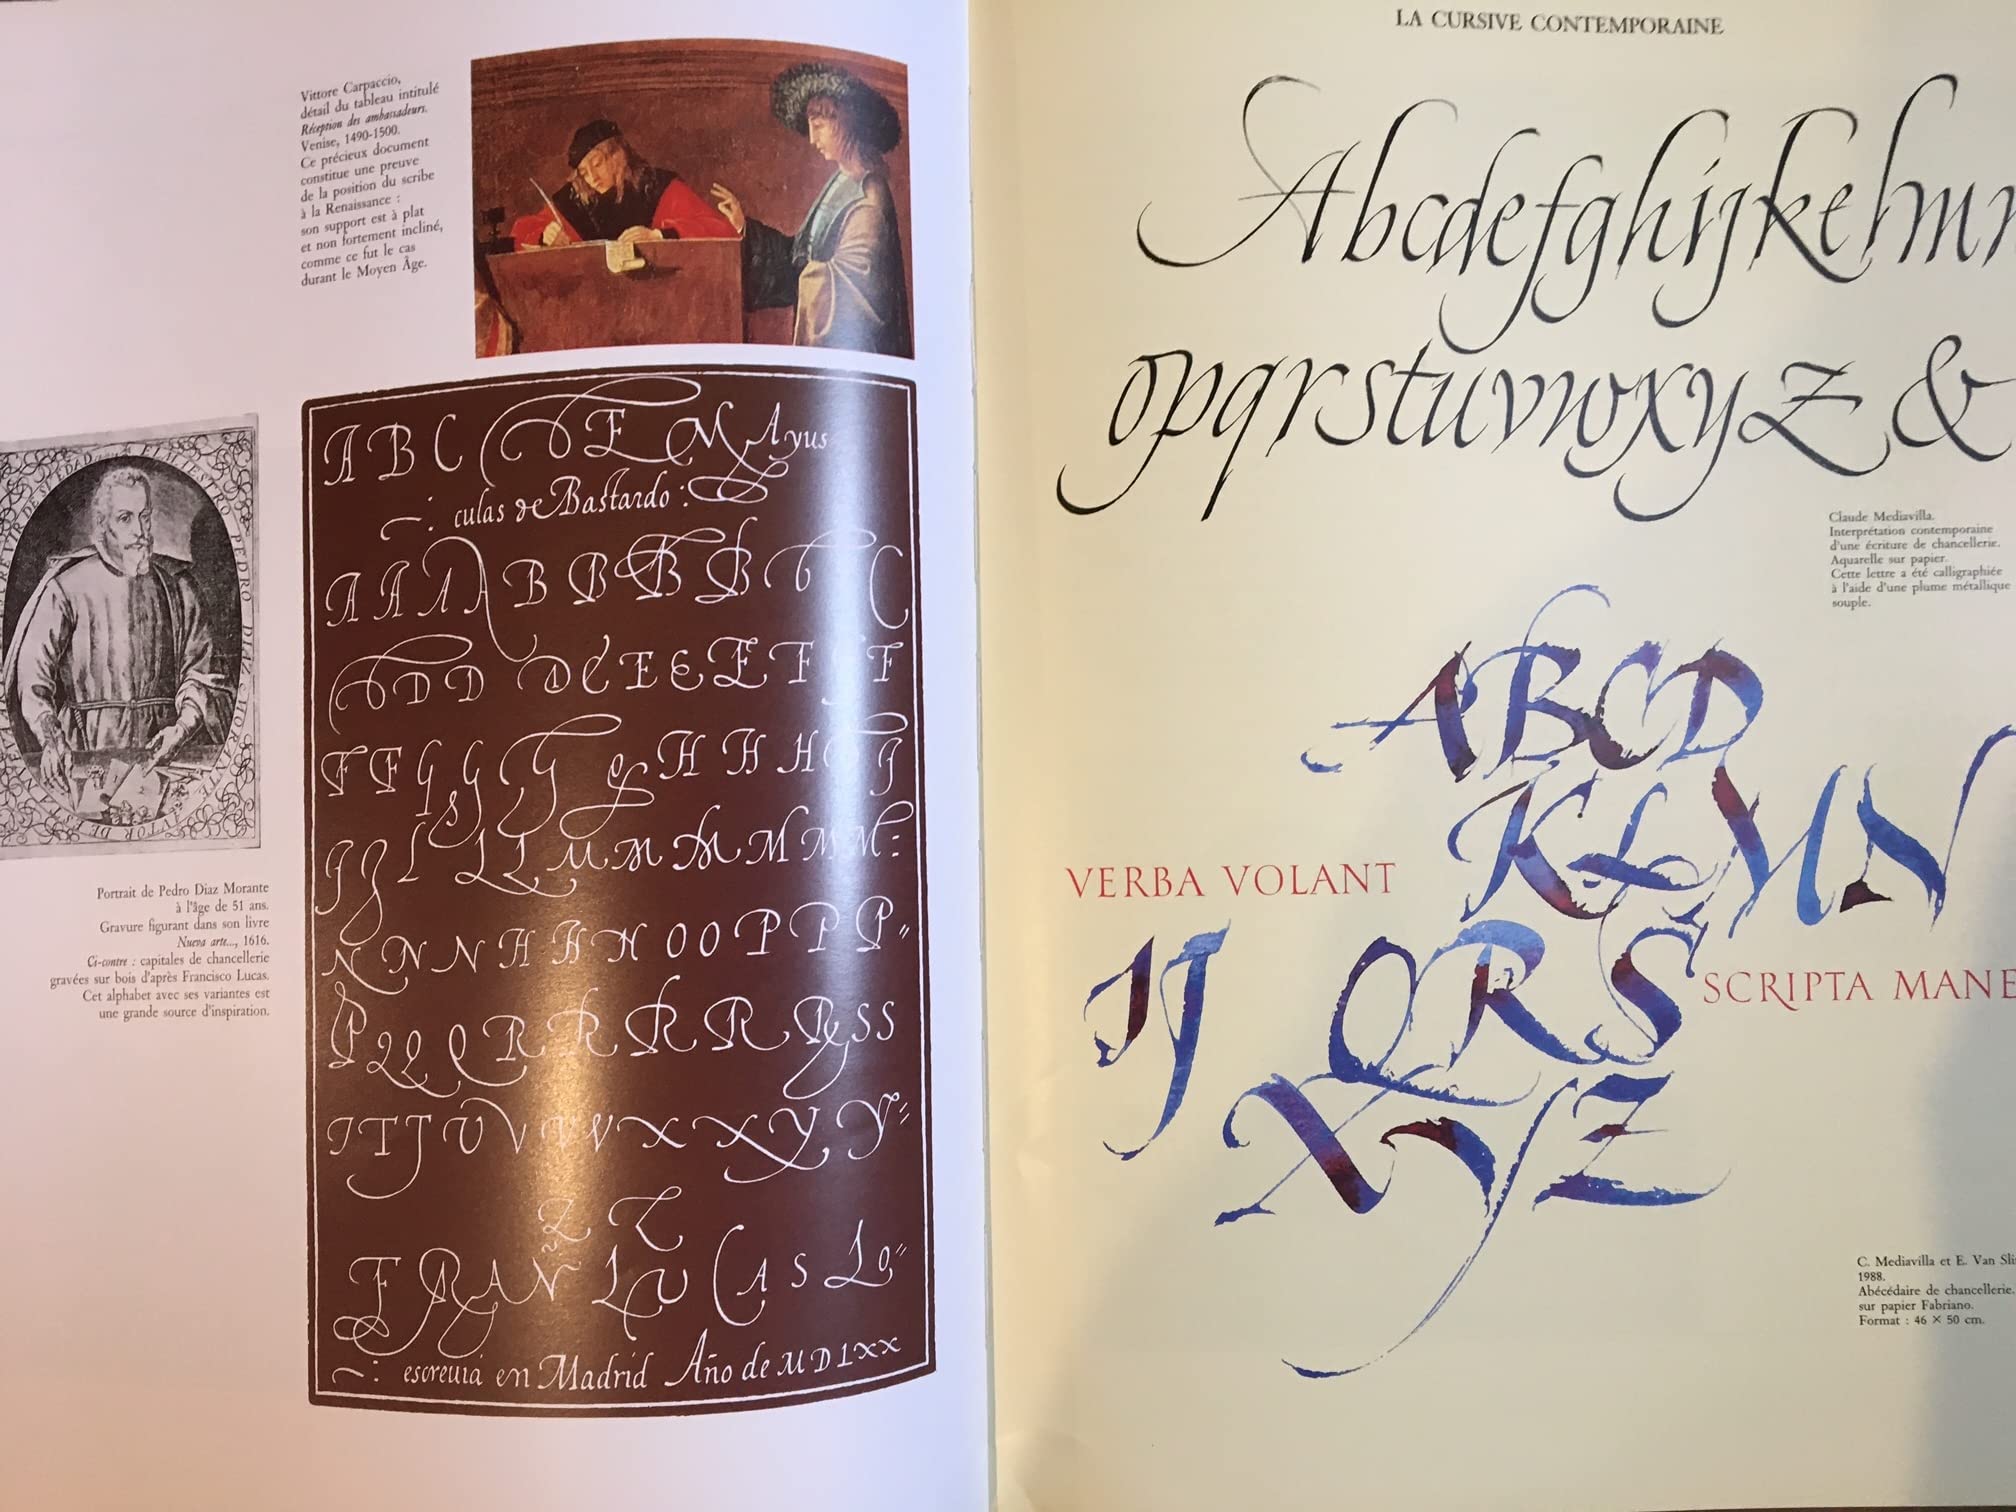 Vittore Carpaccio,
détail du tableau intitulé
Réception des ambassadeurs.
Venise, 1490-1500.
Ce précieux document
constitue une preuve
de la position du scribe
à la Renaissance :
son support est à plat
et non fortement incliné,
comme ce fut le cas
durant le Moyen Âge.
PEDRO DIAZ MORANTE
AVTOR DE
Portrait de Pedro Diaz Morante
à l'âge de 51 ans.
Gravure figurant dans son livre
Nueva arte..., 1616.
Ci-contre : capitales de chancellerie
gravées sur bois d'après Francisco Lucas.
Cet alphabet avec ses variantes est
une grande source d'inspiration.
A B C D E M Ayus
culas de Bastardo :
A A A A B B B B C C
D D D D E E E E F F F
F F G G G G H H H J
J J L L L M M M M M M :
N N N H H N O O P P P
P Q Q Q R R R R R S S
T T T U V V V X X Y Y
Z Z
FRAN LUCAS LO
escreuia en Madrid Año de MDLXX
LA CURSIVE CONTEMPORAINE
Abcdefghijkelmn
opqrstuvwxyz &
Claude Mediavilla.
Interprétation contemporaine
d'une écriture de chancellerie.
Aquarelle sur papier.
Cette lettre a été calligraphiée
à l'aide d'une plume métallique
souple.
ABCD
KLMN
VERBA VOLANT
IJ QRS
SCRIPTA MANE
XYZ
C. Mediavilla et E. Van Sli
1988.
Abécédaire de chancellerie.
sur papier Fabriano.
Format : 46 × 50 cm.